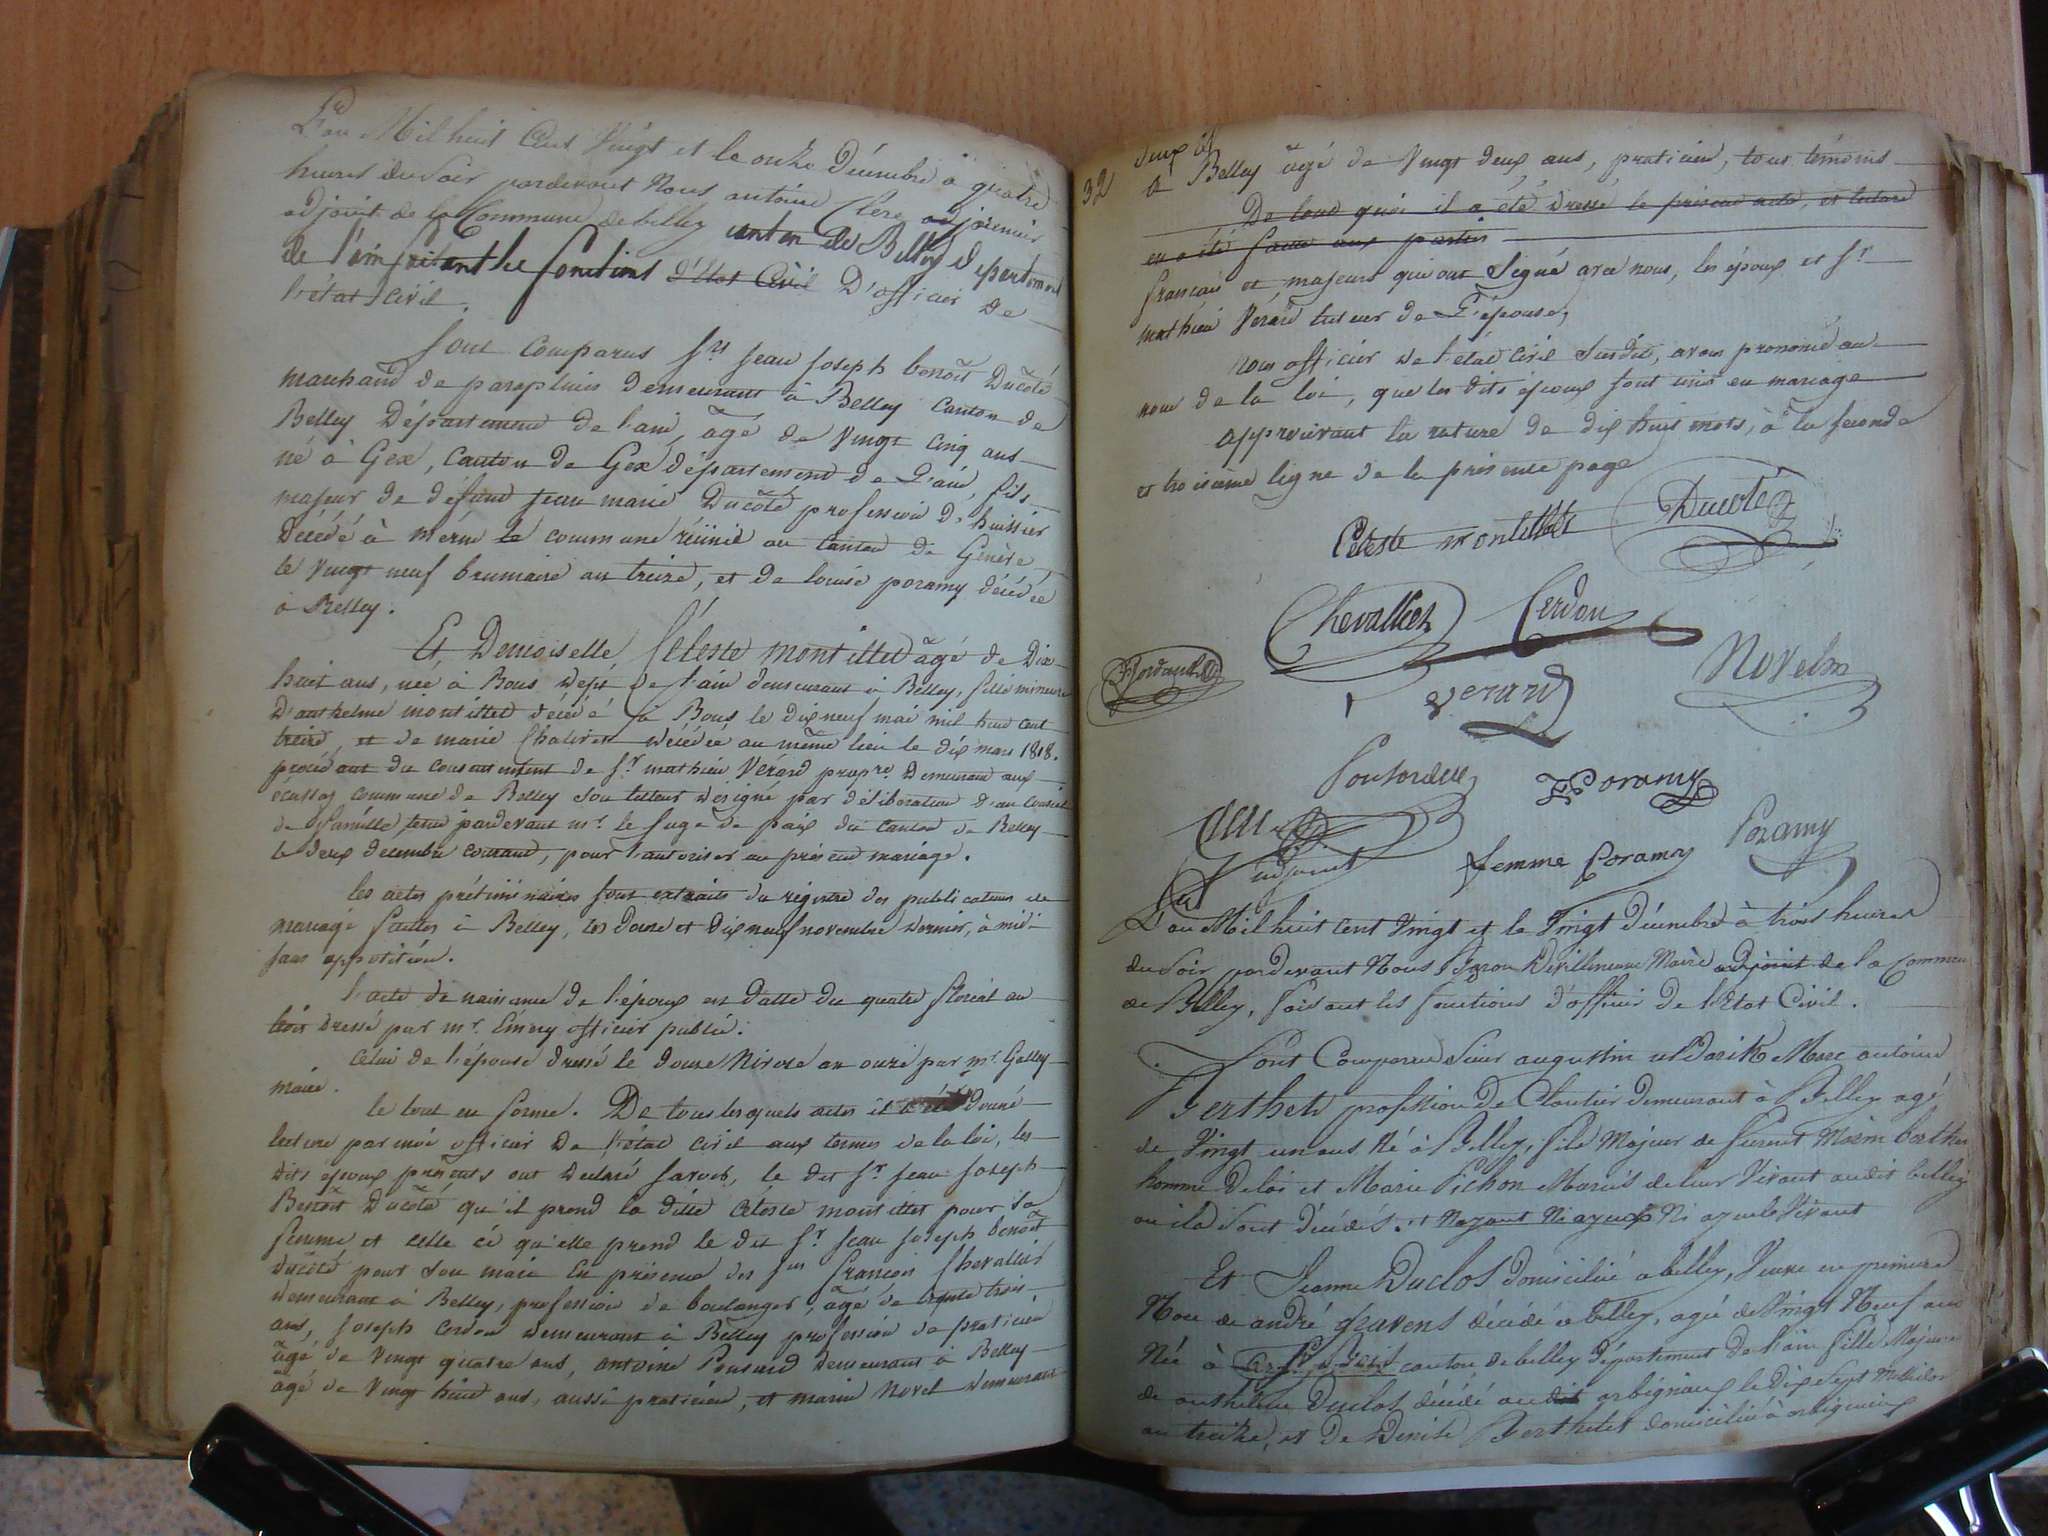 L'an Mil huit Cent Vingt et le onze Décembre à quatre
heures du soir pardevant Nous antoine Clerc, adjoint
adjoint de la Commune de belley canton de Belley Département
de l'ain faisant les fonctions d'Etat Civil D'officier de
l'état civil.
Sont Comparus Srs Jean Joseph benoît Ducôté
marchand de parapluies demeurant à Belley Canton de
Belley Département de l'ain, âgé de Vingt Cinq ans
né à Gex, Canton de Gex département de L'ain, fils
majeur de défunt Jean marie Ducôté profession d'huissier
Décédé à la commune réunie au Canton de Genève,
le Vingt neuf brumaire an treize, et de Louise poramy décédée
à Belley.
Et Demoiselle Céleste montillet âgé de Dix
huit ans, née à Bons dept de l'ain demeurant à Belley, fille mineure
D'anthelme montillet décédé à Bons le dix neuf mai mil huit cent
treize, et de marie Chaliret décédée au même lieu le dix mars 1818.
procédant du consentement de Sr mathieu Vérard propre Demeurant aux
écassaz commune de Belley son tuteur désigné par délibération d'un conseil
de famille tenu pardevant mr. le Juge de paix du canton de Belley
le deux decembre courant, pour l'autoriser au présent mariage.
les actes préliminaires sont extraits du régistre des publications de
mariage faites à Belley, les douze et Dix neuf novembre dernier, à midi
sans opposition.
l'acte de naissance de l'époux en datte du quatre floréal an
trois dressé par mr. Emery officier public.
Celui de l'épouse dressé le douze Nivose an onze par mr Galley
maire.
le tout en forme. De tous lesquels actes il a été donné
lecture par moi officier de l'état civil aux termes de la loi, les
dits époux présents ont déclaré savoir, le dit Sr Jean Joseph
Benoît Ducôté qu'il prend la ditte Céleste montillet pour sa
femme et celle ci qu'elle prend le dit Sr Jean Joseph benoît
Ducôté pour son mari En présence des Srs françois Chevallier
demeurant à Belley, profession de boulanger, âgé de trente trois
ans, Joseph Cerdon demeurant à Belley profession de praticien
âgé de Vingt quatre ans, antoine Ponsard demeurant à Belley
âgé de Vingt huit ans, aussi praticien, et marin Novel demeurant
32
à Belley âgé de Vingt deux ans, praticien, tous témoins
De tout quoi il a été dressé le présent acte, et lecture
en a été faite aux parties
français et majeurs qui ont Signé avec nous, les époux et Sr
mathieu Vérard tuteur de L'épouse,
nous officier de l'état civil Susdit, avons prononcé au
nom de la loi, que les dits époux sont unis en mariage
approuvant la rature de dix huit mots, à la seconde
et troisième ligne de la présente page
Celeste montillet Ducôté
Chevallier Cerdon
Novel
Verard
Poramy
adjoint
femme Poramy Poramy
L'an Mil huit cent Vingt et le Vingt décembre à trois heures
du soir pardevant Nous Baron Devilleneuve Maire adjoint de la Commune
de Belley, faisant les fonctions d'officier de l'Etat Civil.
Sont Comparus Sieur augustin Marc antoine
Berthet profession de Cloutier demeurant à Belley agé
de Vingt un ans Né à Belley, fils Majeur de berthet
homme De loi et Marie Pichon Mariés de leur Vivant audit belley
ou ils Sont décédés. et Nayant Ni ayeux Ni ayeule Vivant
Et Jeanne Duclos domiciliée a belley, Veuve en premiere
Noce de andré gravens décédé a belley, agée de Vingt Neuf ans
Née à canton de belley département de l'ain fille Majeure
de anthelme Duclos décédé audit arbignieux le dix Sept
an treize, et De Denise Berthelet domiciliée à arbignieux